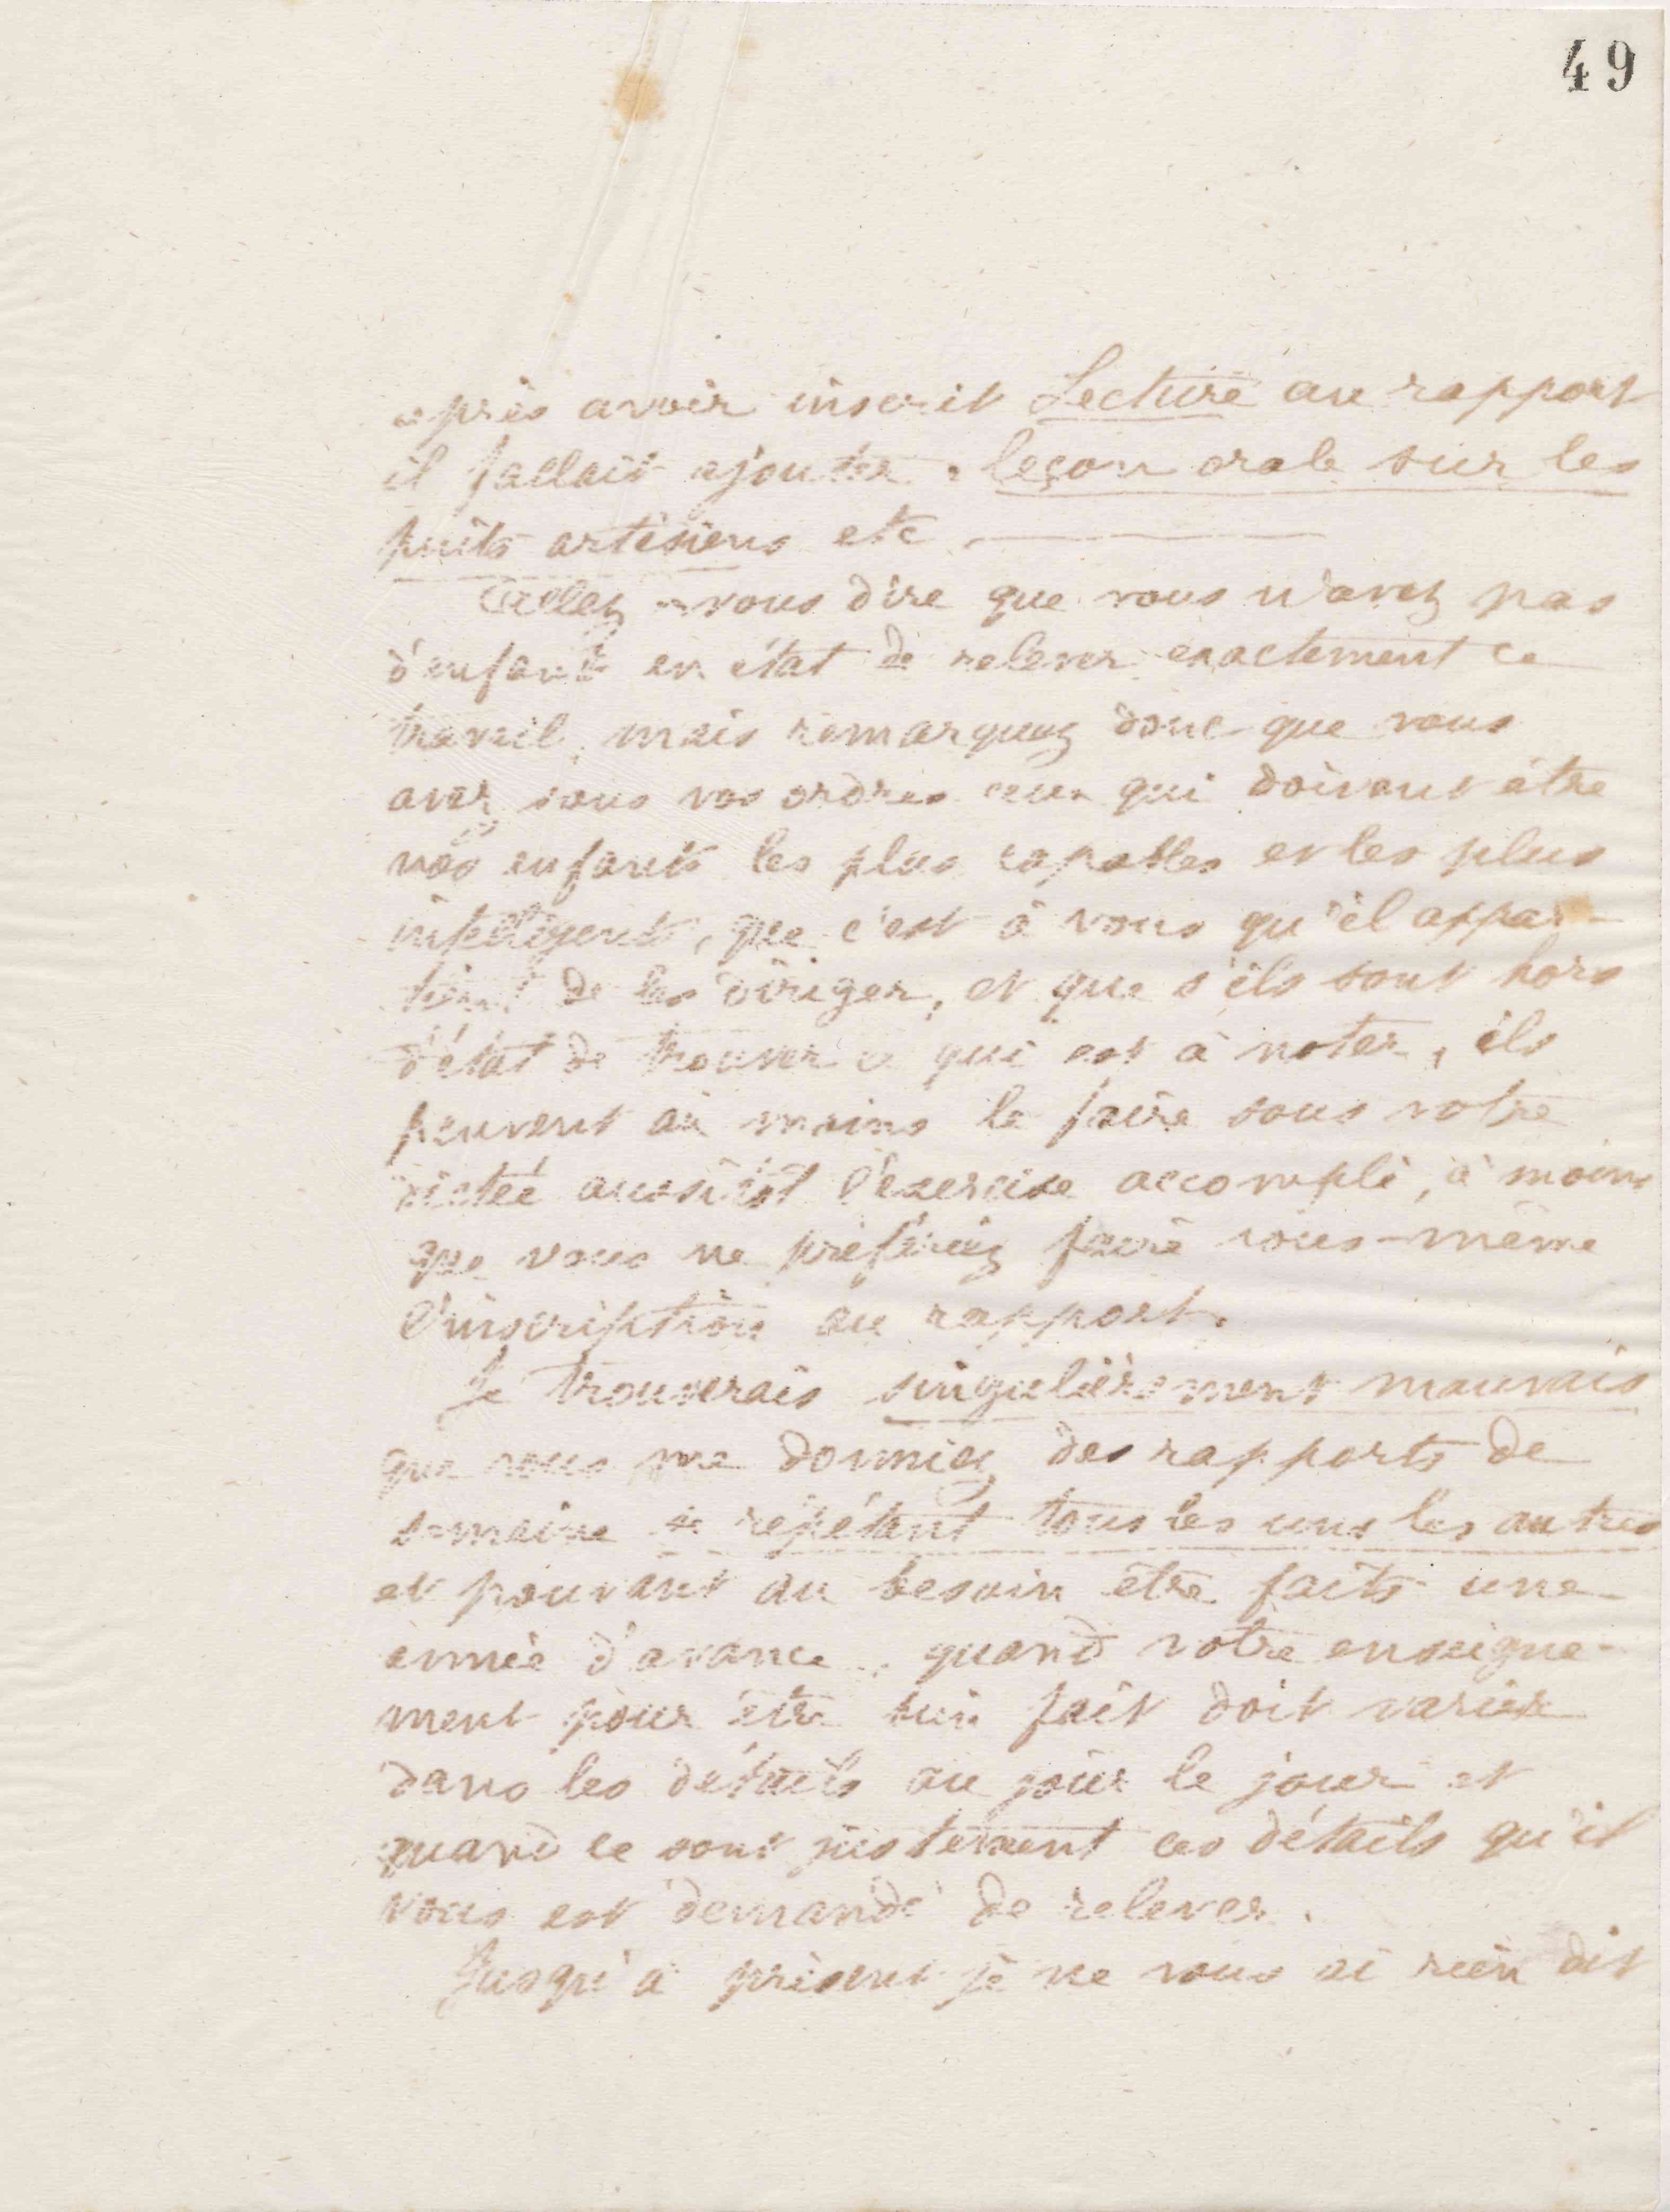 49
après avoir inscrit Lecture au rapport
il fallait ajouter : leçon orale sur les
puits artésiens etc.
Allez-vous dire que vous n'avez pas
d'enfant en état de relever exactement ce
travail, mais remarquez donc que vous
avez sous vos ordres ceux qui doivent être
nos enfants les plus capables et les plus
intelligents, que c'est à vous qu'il appar-
tient de les diriger, et que s'ils sont hors
d'état de trouver ce qui est à noter, ils
peuvent au moins le faire sous votre
dictée aussitôt l'exercice accompli, à moins
que vous ne préfériez faire vous-même
l'inscription au rapport.
Je trouverais singulièrement mauvais
que vous me donniez des rapports de
semaine se répétant tous les uns les autres
et pouvant au besoin être faits une
année d'avance, quand votre enseigne-
ment pour être bien fait doit varier
dans les détails au jour le jour et
quand ce sont justement ces détails qu'il
vous est demandé de relever.
Jusqu'à présent je ne vous ai rien dit